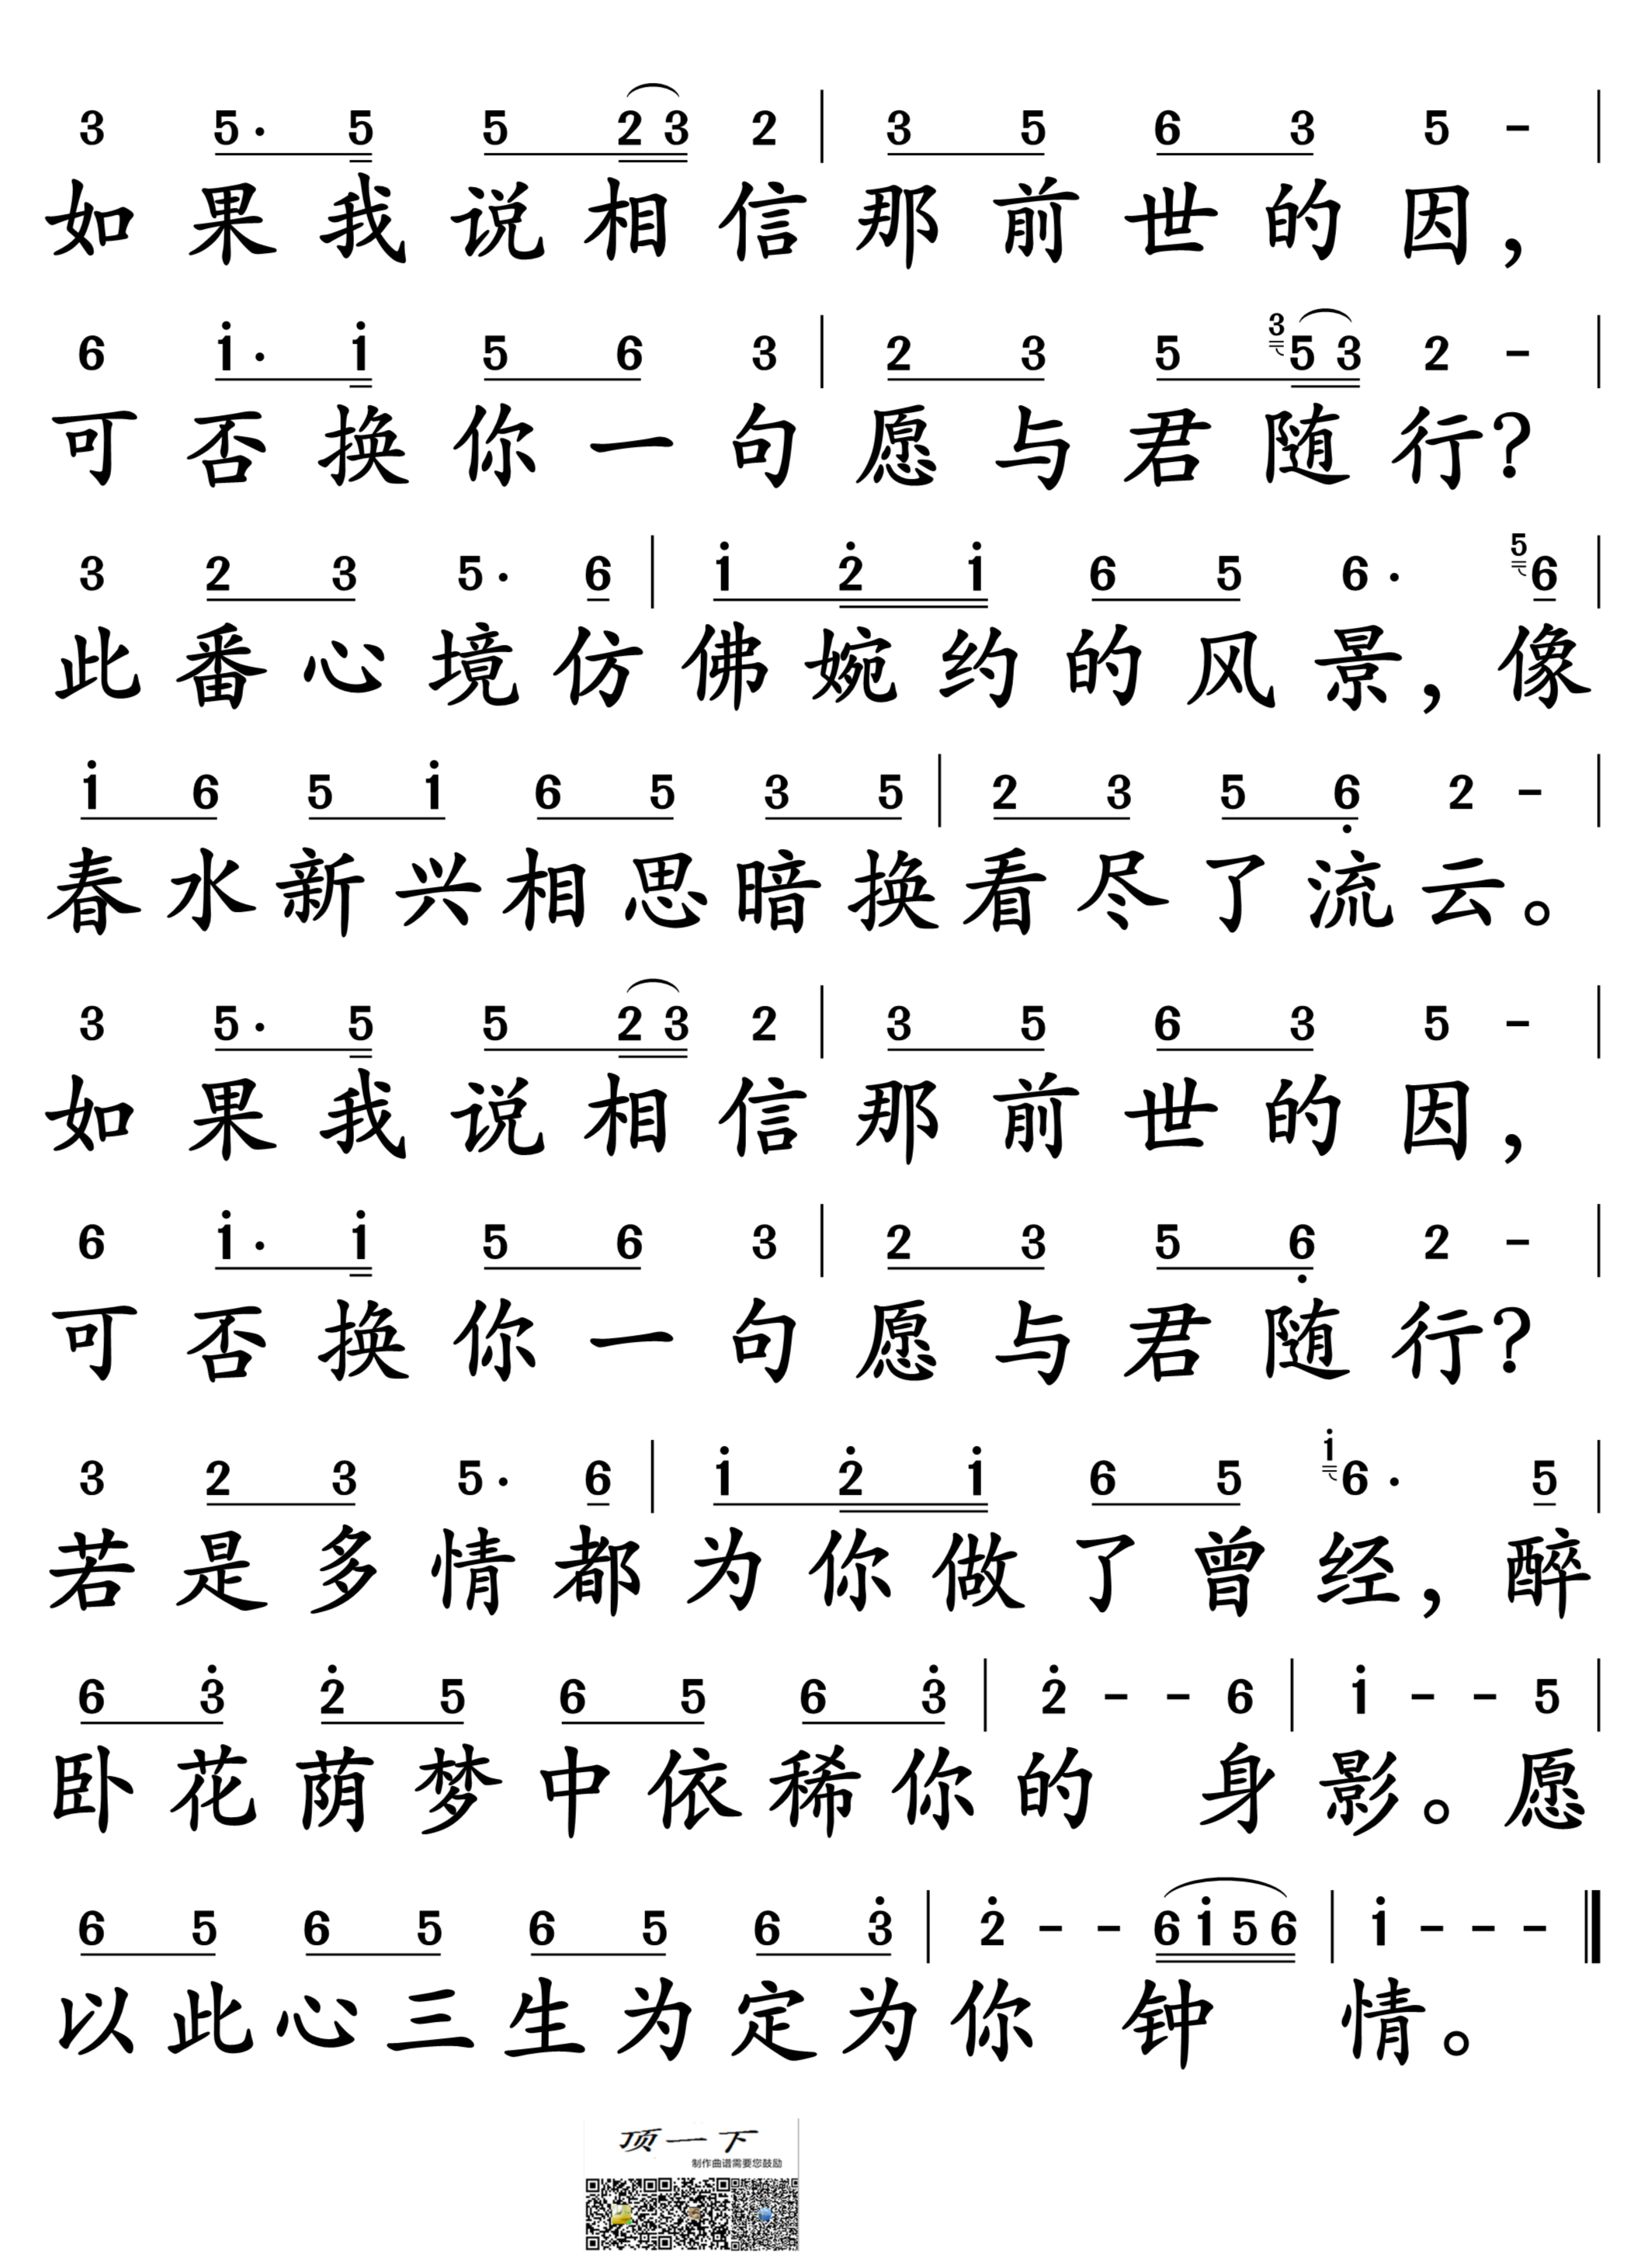 3 5· 5 5 2 3 2 | 3 5 6 3 5 - |
如果我说相信那前世的因，
6 i· i 5 6 3 | 2 3 5 3 5 3 2 - |
可否换你一句愿与君随行？
3 2 3 5· 6 | i 2̇ i 6 5 6· 5 6 |
此番心境仿佛婉约的风景，像
i 6 5 i 6 5 3 5 | 2 3 5 6̣ 2 - |
春水新兴相思暗换看尽了流云。
3 5· 5 5 2 3 2 | 3 5 6 3 5 - |
如果我说相信那前世的因，
6 i· i 5 6 3 | 2 3 5 6̣ 2 - |
可否换你一句愿与君随行？
3 2 3 5· 6 | i 2̇ i 6 5 i 6· 5 |
若是多情都为你做了曾经，醉
6 3̇ 2̇ 5 6 5 6 3̇ | 2̇ - - 6 | i - - 5 |
卧花荫梦中依稀你的 身影。愿
6 5 6 5 6 5 6 3̇ | 2̇ - - 6 i 5 6 | i - - - ‖
以此心三生为定为你 钟 情。
顶一下
制作曲谱需要您鼓励